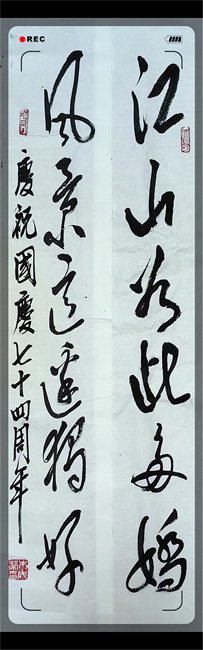 REC
江山如此多嬌
風景這邊獨好
慶祝國慶七十四周年